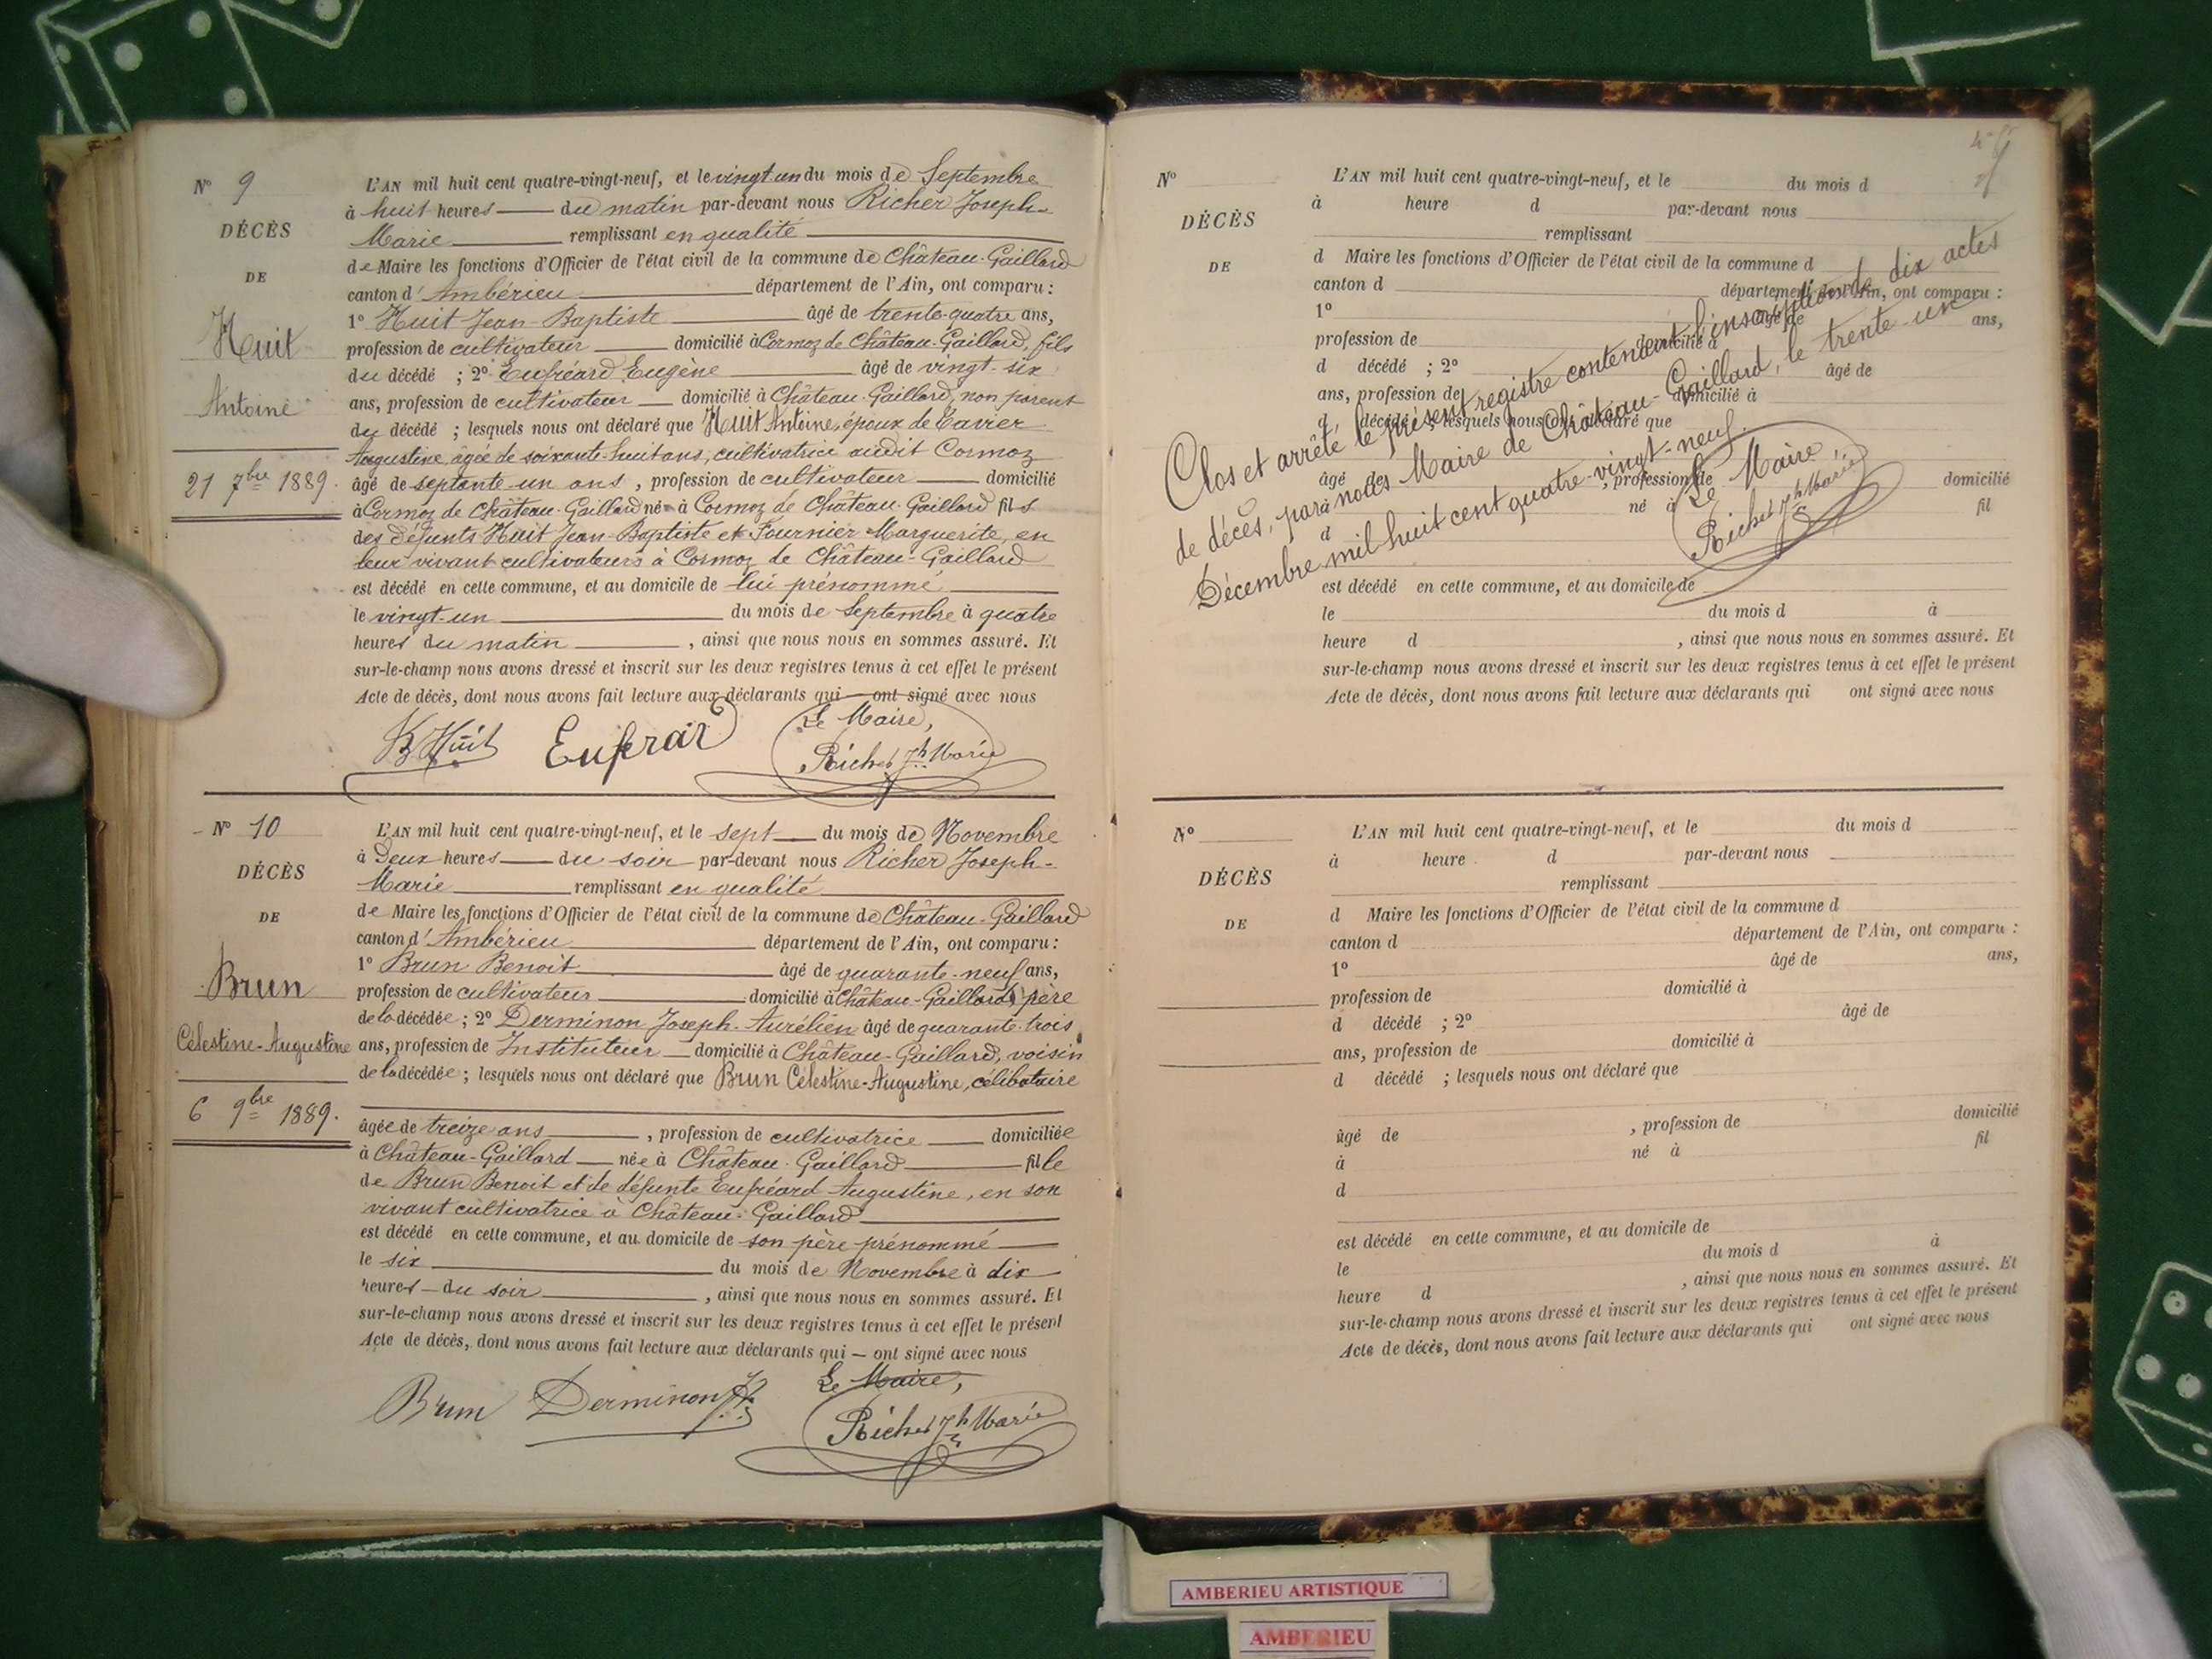 N° 9
DÉCÈS
DE
Huit
Antoine
21 7bre 1889.
L'AN mil huit cent quatre-vingt-neuf, et le vingt un du mois de Septembre
à huit heures du matin par-devant nous Richer Joseph-
Marie remplissant en qualité
de Maire les fonctions d'Officier de l'état civil de la commune de Château-Gaillard
canton d'Ambérieu département de l'Ain, ont comparu :
1° Huit Jean-Baptiste âgé de trente-quatre ans,
profession de cultivateur domicilié à Cormoz de Château-Gaillard, fils
du décédé ; 2° Eufréard Eugène âgé de vingt-six
ans, profession de cultivateur domicilié à Château-Gaillard, non parent
du décédé ; lesquels nous ont déclaré que Huit Antoine, époux de Tavier
Augustine, âgée de soixante-huit ans, cultivatrice audit Cormoz
âgé de septante-un ans, profession de cultivateur domicilié
à Cormoz de Château-Gaillard né à Cormoz de Château-Gaillard fils
des défunts Huit Jean-Baptiste et Fournier Marguerite, en
leur vivant cultivateurs à Cormoz de Château-Gaillard
est décédé en cette commune, et au domicile de lui prénommé
le vingt-un du mois de Septembre à quatre
heures du matin, ainsi que nous nous en sommes assuré. Et
sur-le-champ nous avons dressé et inscrit sur les deux registres tenus à cet effet le présent
Acte de décès, dont nous avons fait lecture aux déclarants qui ont signé avec nous
Le Maire,
JB Huit Eufrar Richer Jh Marie
N° 10
DÉCÈS
DE
Brun
Célestine-Augustine
6 9bre 1889.
L'AN mil huit cent quatre-vingt-neuf, et le sept du mois de Novembre
à Deux heures du soir par-devant nous Richer Joseph-
Marie remplissant en qualité
de Maire les fonctions d'Officier de l'état civil de la commune de Château-Gaillard
canton d'Ambérieu département de l'Ain, ont comparu :
1° Brun Benoit âgé de quarante-neuf ans,
profession de cultivateur domicilié à Château-Gaillard, père
de la décédée ; 2° Derminon Joseph-Aurélien âgé de quarante-trois
ans, profession de Instituteur domicilié à Château-Gaillard, voisin
de la décédée ; lesquels nous ont déclaré que Brun Célestine-Augustine, célibataire
âgée de treize ans, profession de cultivatrice domiciliée
à Château-Gaillard née à Château-Gaillard fille
de Brun Benoit et de défunte Eufréard Augustine, en son
vivant cultivatrice à Château-Gaillard
est décédé en cette commune, et au domicile de son père prénommé
le six du mois de Novembre à dix
heures du soir, ainsi que nous nous en sommes assuré. Et
sur-le-champ nous avons dressé et inscrit sur les deux registres tenus à cet effet le présent
Acte de décès, dont nous avons fait lecture aux déclarants qui — ont signé avec nous
Le Maire,
Brun Derminon Richer Jh Marie
N°
DÉCÈS
DE
L'AN mil huit cent quatre-vingt-neuf, et le du mois d
à heure d par-devant nous
remplissant
d Maire les fonctions d'Officier de l'état civil de la commune d
canton d département de l'Ain, ont comparu :
1° âgé de ans,
profession de domicilié à
d décédé ; 2° âgé de
ans, profession de domicilié à
d décédé ; lesquels nous ont déclaré que
âgé de , profession de domicilié
à né à fil
d
est décédé en cette commune, et au domicile de
le du mois d à
heure d , ainsi que nous nous en sommes assuré. Et
sur-le-champ nous avons dressé et inscrit sur les deux registres tenus à cet effet le présent
Acte de décès, dont nous avons fait lecture aux déclarants qui ont signé avec nous
Clos et arrêté le présent registre contenant l'inscription de dix actes
de décès, par nous Maire de Château-Gaillard, le trente-un
Décembre mil huit cent quatre-vingt-neuf.
Le Maire
Richer Jh Marie
N°
DÉCÈS
DE
L'AN mil huit cent quatre-vingt-neuf, et le du mois d
à heure d par-devant nous
remplissant
d Maire les fonctions d'Officier de l'état civil de la commune d
canton d département de l'Ain, ont comparu :
1° âgé de ans,
profession de domicilié à
d décédé ; 2° âgé de
ans, profession de domicilié à
d décédé ; lesquels nous ont déclaré que
âgé de , profession de domicilié
à né à fil
d
est décédé en cette commune, et au domicile de
le du mois d à
heure d , ainsi que nous nous en sommes assuré. Et
sur-le-champ nous avons dressé et inscrit sur les deux registres tenus à cet effet le présent
Acte de décès, dont nous avons fait lecture aux déclarants qui ont signé avec nous
AMBERIEU ARTISTIQUE
AMBERIEU